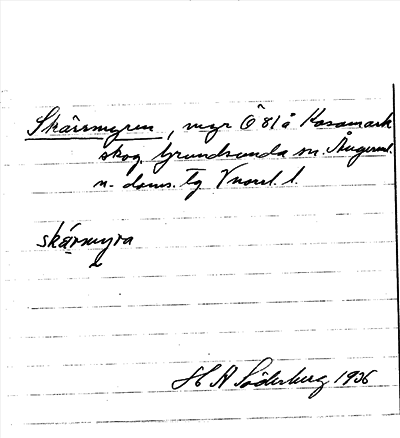 Skärsmyren, myr Ö 81 å Kasamark
skog, Grundsunda sn. Ångerml.
n. doms. Tg Vnorrl. l.
skärmyra
H A Söderberg 1936